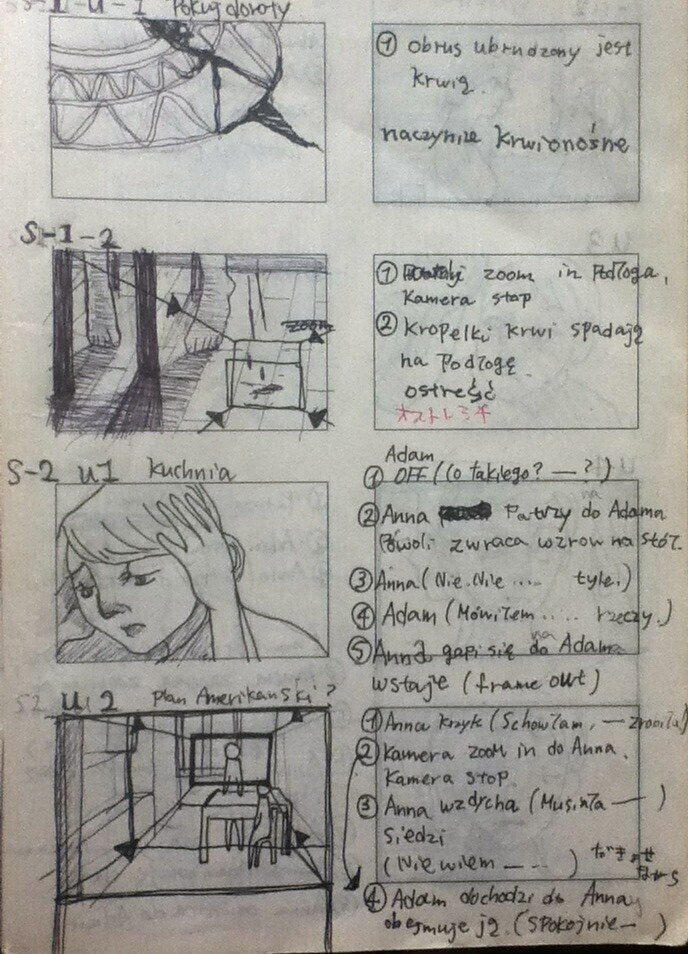 S-1-U-1 Pokuj doroty
① obrus ubrudzony jest
krwią.
naczynize krwionośne
S-1-2
zoom
① zoom in Podłoga,
Kamera stop
② Kropelki krwi spadają
na Podłogę.
ostrość
S-2 U1 kuchnia
Adam
① OFF (Co takiego? — ?)
② Anna Patrzy na do Adama
Powoli zwraca wzrow na stół.
③ Anna (Nie. Nie .... tyle.)
④ Adam (Mówiłem .... rzeczy.)
⑤ Anna gapi się na do Adama
wstaje (frame out)
S2 U.2 plan Amerikanski?
① Anna krzyk (Schowłam, —
② Kamera zoom in do Anna.
Kamera stop.
③ Anna wzdycha (Musiała — )
siedzi
(Nie wiem — — )
だきよせ
ながら
④ Adam obchodzi do Anny
obejmuje ją. (Spokojnie — )